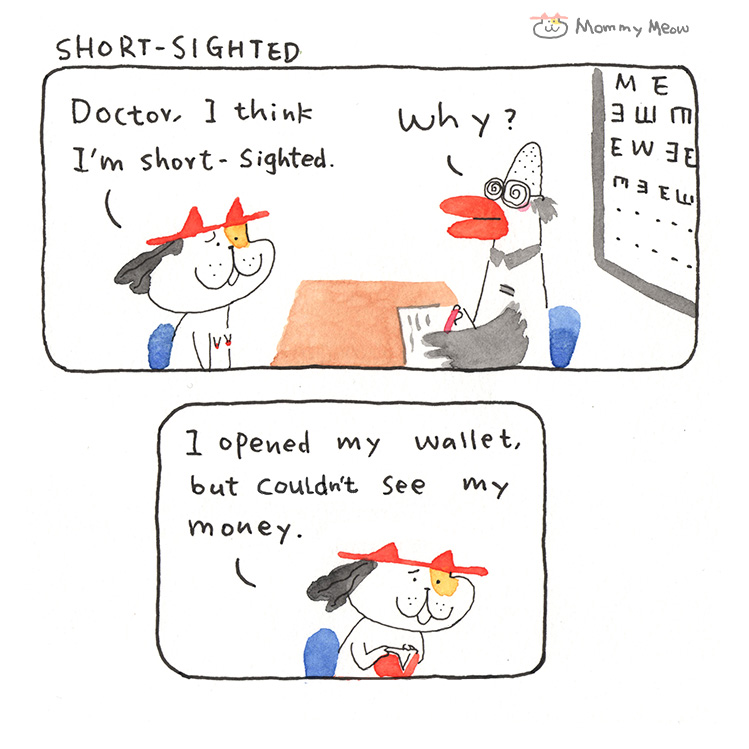 Mommy Meow
SHORT-SIGHTED
Doctor, I think
I'm short-sighted.
Why?
M E
E W M
E W E E
M E E W
I opened my wallet,
but couldn't see my
money.